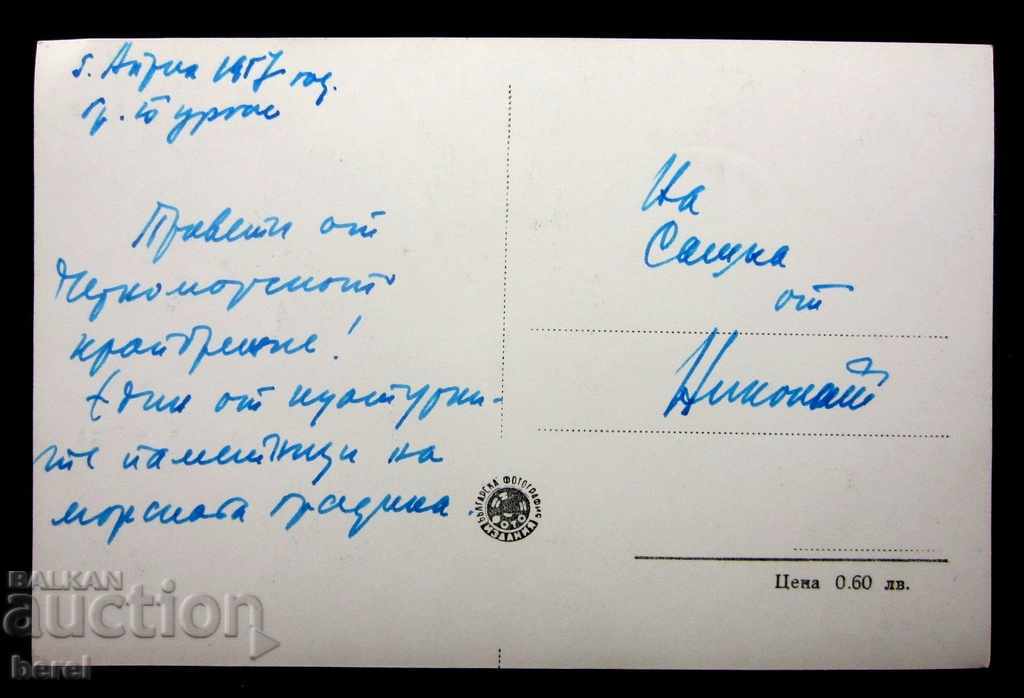 5. Април 1957 год.
гр. Бургас
Привети от
Черноморското
крайбрежие!
Един от културни-
те паметници на
морската градина.
На
Сашка
от
Николай
БЪЛГАРСКА ФОТОГРАФИЯ
ФОТО
ИЗДАНИЯ
Цена 0.60 лв.
BALKAN
auction
berel